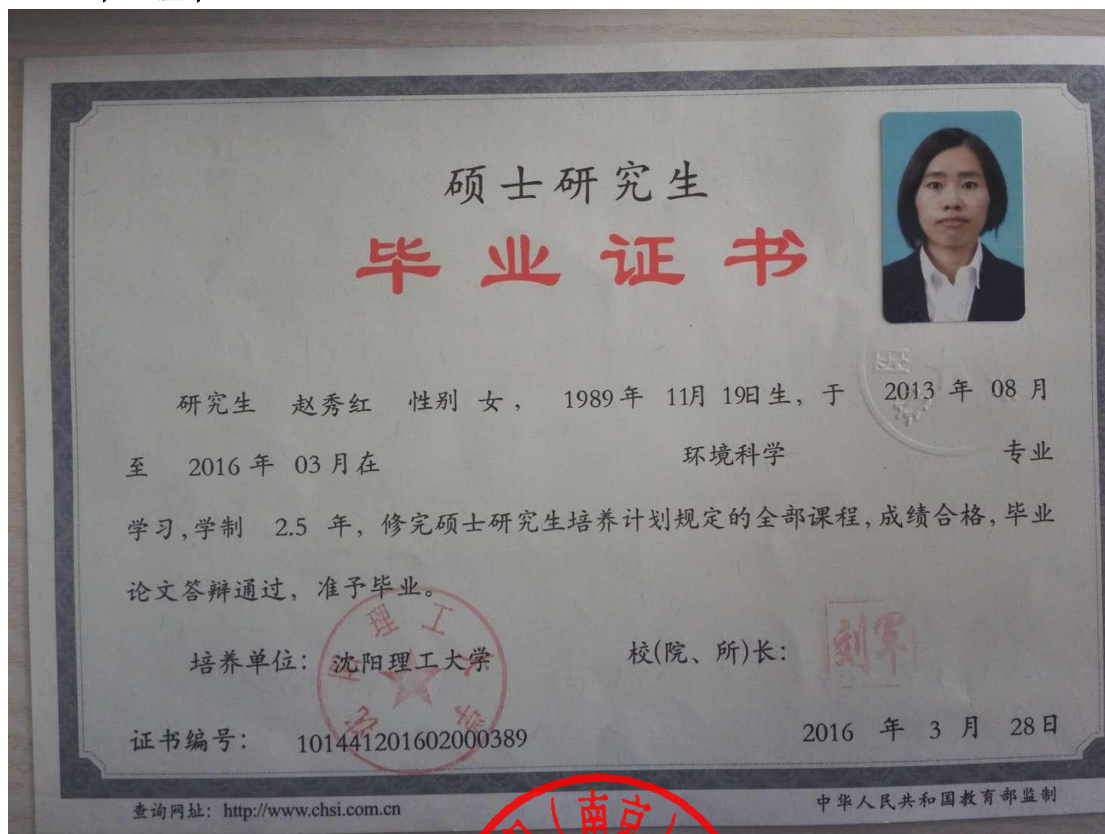 硕士研究生
毕业证书
研究生 赵秀红 性别 女, 1989年 11月 19日生, 于 2013 年 08 月
至 2016 年 03 月在 环境科学 专业
学习,学制 2.5 年, 修完硕士研究生培养计划规定的全部课程,成绩合格,毕业
论文答辩通过, 准予毕业。
培养单位: 沈阳理工大学 校(院、所)长: 刘军
证书编号: 101441201602000389 2016 年 3 月 28日
查询网址: http://www.chsi.com.cn 中华人民共和国教育部监制
南京